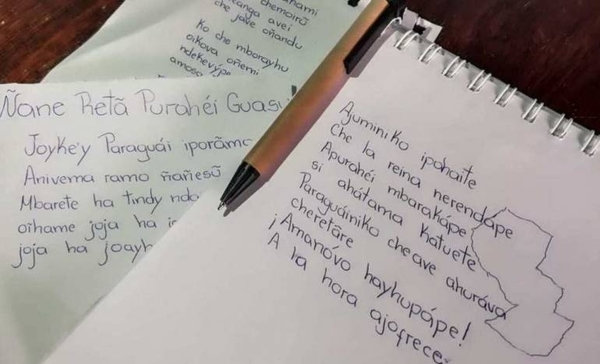 chemoirũ
avei
che jave oñandu
Ko che mborayhu
oikova oñemi
ndekevýpe
Ñane Retã Purahéi Guasu
Joyke'y Paraguái iporãmc
Anivema ramo ñañesũ
Mbarete ha tindy ndo
oihame joja ha
joja ha joayh
Ajuminiko ipohaite
Che la reina nerendápe
Apurahéi mbarakápe
si ahátama katuete
Paraguáiniko cheave ahuráva
cheretãre
¡Amanóvo hayhupápe!
A la hora ajofrecei